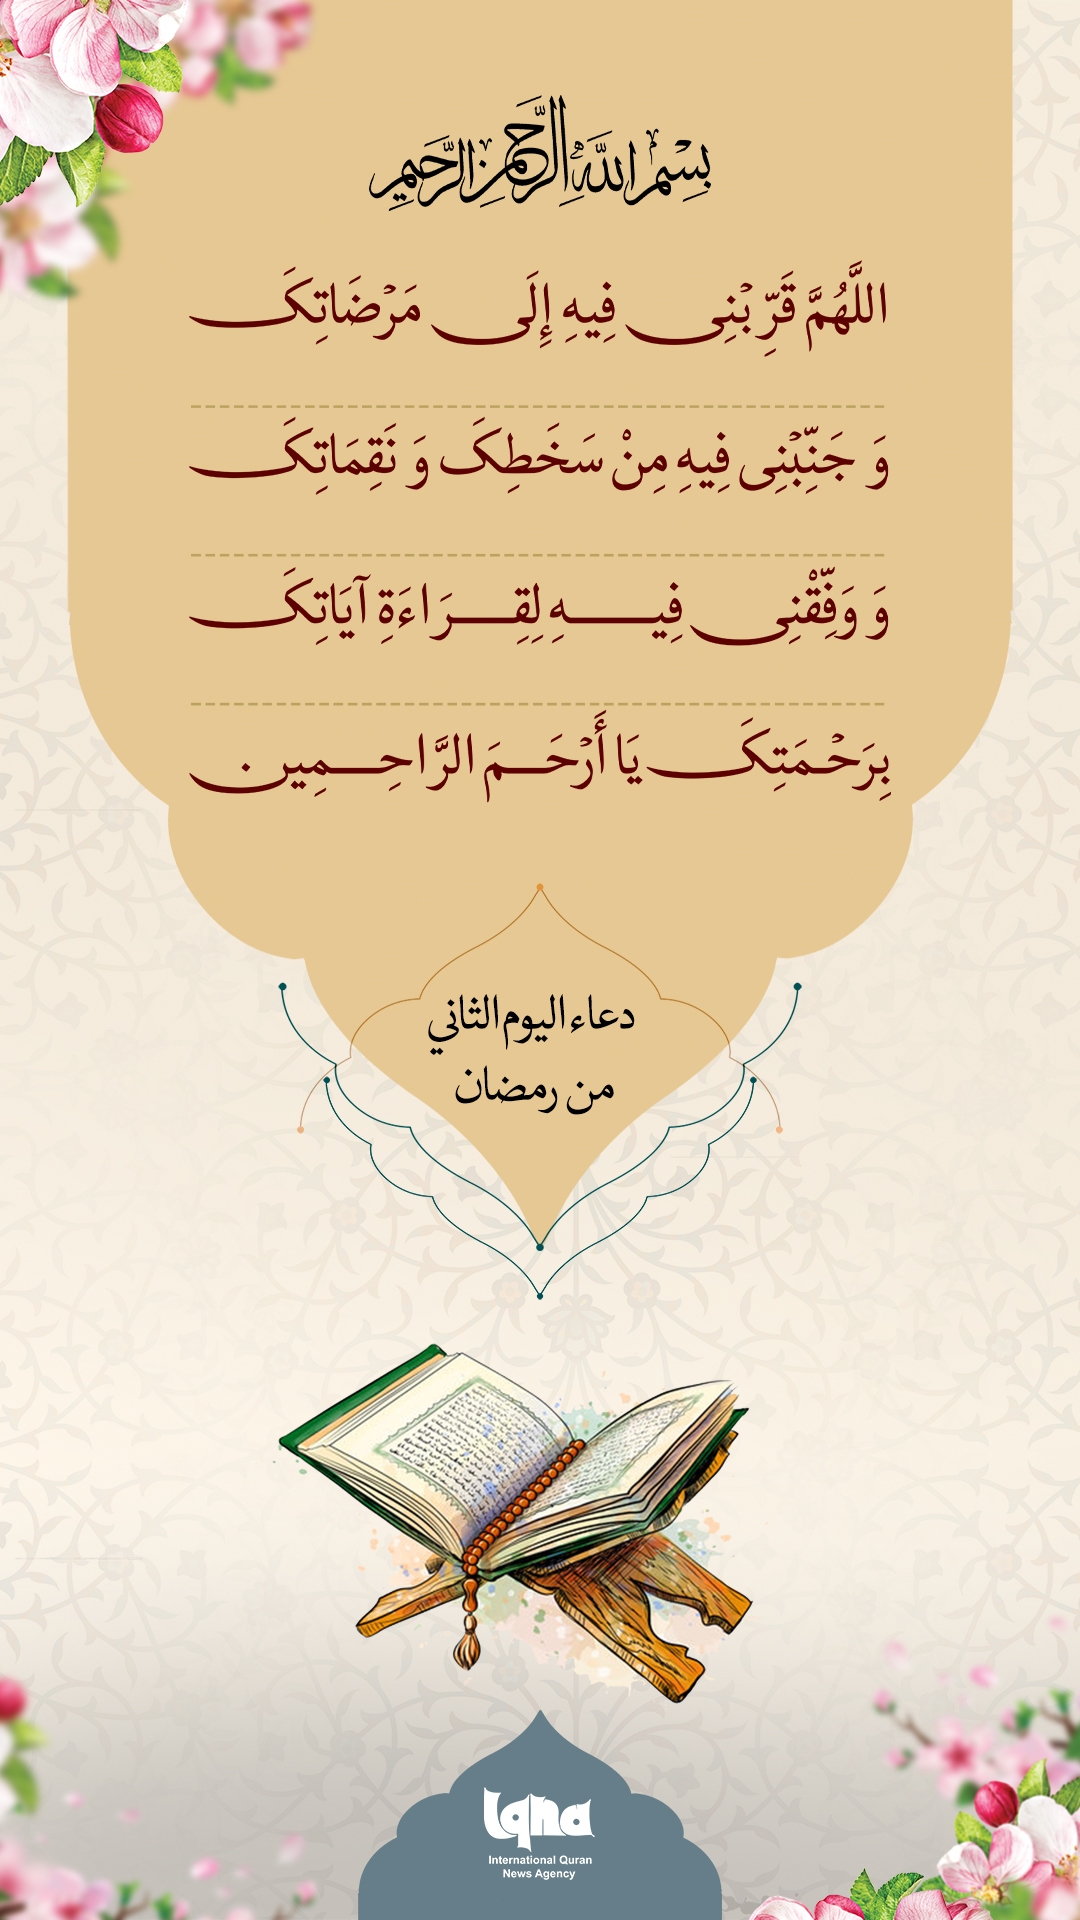 بِسْمِ اللَّهِ الرَّحْمَٰنِ الرَّحِيمِ
اللَّهُمَّ قَرِّبْنِی فِيهِ إِلَى مَرْضَاتِکَ
وَ جَنِّبْنِی فِيهِ مِنْ سَخَطِکَ وَ نَقِمَاتِکَ
وَ وَفِّقْنِی فِيهِ لِقِرَاءَةِ آيَاتِکَ
بِرَحْمَتِکَ يَا أَرْحَمَ الرَّاحِمِين
دعاء اليوم الثاني
من رمضان
Iqna
International Quran
News Agency